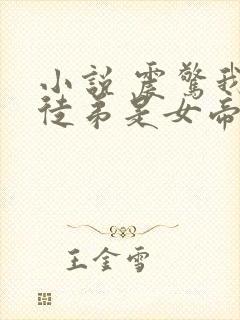 小說 震驚我
徒弟是女帝
王金雪